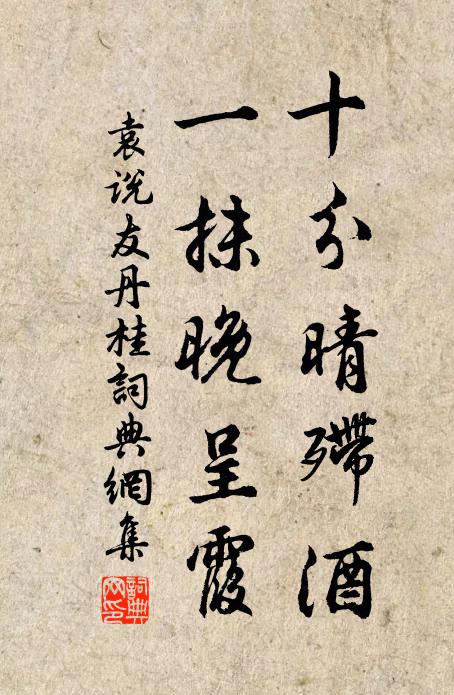 十分晴殢酒
一抹晚呈霞
袁说友丹桂詞典網集
詞典網印